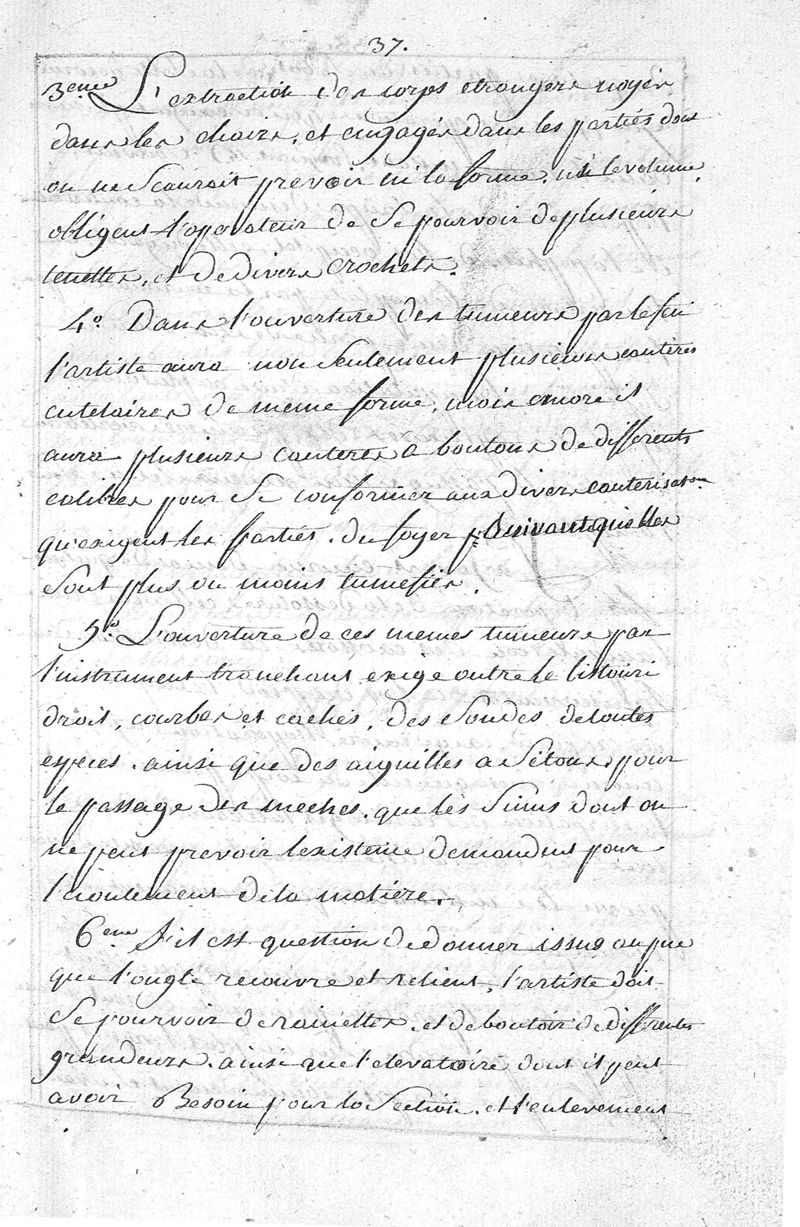 37.
3eme L'extraction des corps etrangers noyés
dans les chairs, et engagés dans les parties dont
on ne scauroit prevoir ni la forme, ni le volume,
obligent l'operateur de se pourvoir de plusieurs
tenettes, et de divers crochets.
4.o Dans l'ouverture des tumeurs par le feu
l'artiste aura non seulement plusieurs cautères
cutelaires de meme forme, mais encore il
aura plusieurs cauteres a boutons de differents
calibres pour se conformer aux divers cauterisation
qu'exigent les parties du foyer suivant qu'elles
sont plus ou moins tumefiés.
5.o L'ouverture de ces memes tumeurs par
l'instrument tranchant exige outre le bistouri
droit, courbes et cachés, des sondes de toutes
especes, ainsi que des aiguilles a setons pour
le passage des meches, que les sinus dont on
ne peut prevoir l'existence demandent pour
l'écoulement de la matière.
6.eme S'il est question de donner issue au pue
que l'ongle recouvre et retient, l'artiste doit
se pourvoir de rainettes, et de boutoir de differentes
grandeurs, ainsi que l'elevatoire dont il peut
avoir Besoin pour la section, et l'enlevement